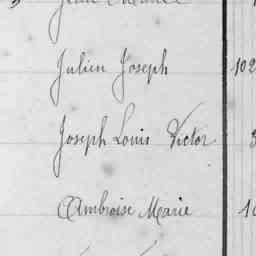 Julien Joseph 102
Joseph Louis Victor
Ambroise Marie